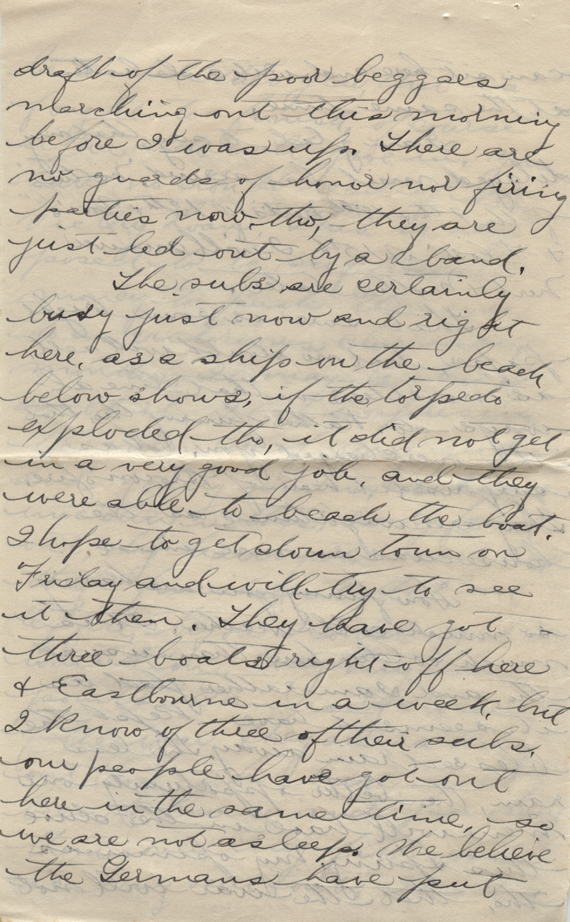 draft of the poor beggars
marching out this morning
before I was up. There are
no guards of honor nor firing
parties now, tho, they are
just led out by a band.
The subs are certainly
busy just now and right
here, as a ship on the beach
below shows, if the torpedo
exploded tho, it did not get
in a very good job, and they
were able to beach the boat.
I hope to get down town on
Friday and will try to see
it then. They have got
three boats right off here
& Eastbourne in a week, but
I know of three of their subs.
our people have got out
here in the same time, so
we are not asleep. We believe
the Germans have put